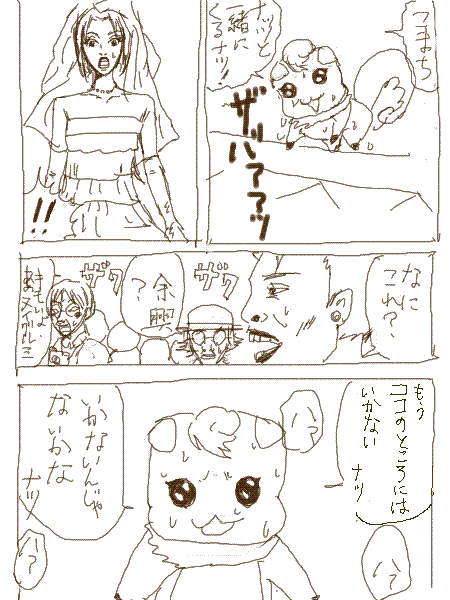 こまち
ナッと
一緒に
くるナツ!
ザッハァ??ッ
!!
なに
これ?
ザワ
余興
?
ザワ
きもいよ、
あのヌイグルミ
もう
ココのところには
いかない
ナツ
は?
は?
いかないんじゃ
ないかな
ナツ
は?